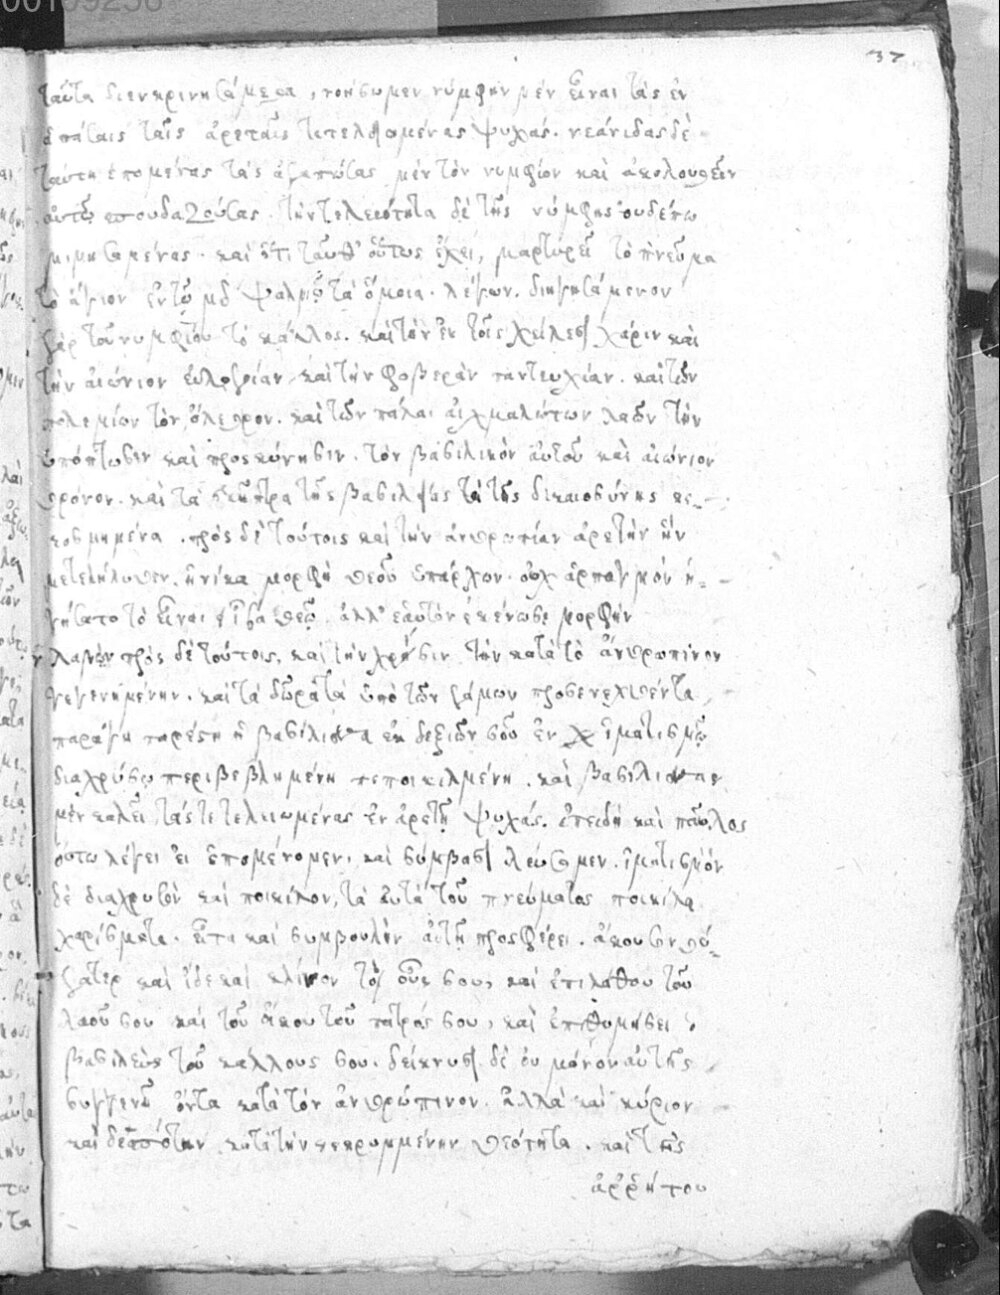 00109256
37
ταῦτα διευκρινησάμεθα, νοήσωμεν νύμφην μὲν εἶναι τὰς ἐν
ἁπάσαις ταῖς ἀρεταῖς τετελειωμένας ψυχάς. νεάνιδας δὲ
ταύτη ἑπομένας τὰς ἀγαπώσας μὲν τὸν νυμφίον καὶ ἀκολουθεῖν
αὐτῷ σπουδαζούσας. τὴν τελειότητα δὲ τῆς νύμφης οὐδέπω
μιμησαμένας. καὶ ὅτι ταῦθ' οὕτως ἔχει, μαρτυρεῖ τὸ πνεῦμα
τὸ ἅγιον ἐν τῷ μδ ψαλμῷ τὰ ὅμοια λέγων. διηγησάμενον
γὰρ τοῦ νυμφίου τὸ κάλλος. καὶ τὴν ἐν τοῖς χείλεσι χάριν καὶ
τὴν αἰώνιον εὐλογίαν καὶ τὴν φοβερὰν παντευχίαν. καὶ τῶν
πολεμίων τὸν ὄλεθρον. καὶ τῶν πάλαι αἰχμαλώτων λαῶν τὴν
ὑπόπτωσιν καὶ προσκύνησιν. τὸν βασιλικὸν αὐτοῦ καὶ αἰώνιον
θρόνον. καὶ τὰ σκῆπτρα τῆς βασιλείας τὰ τῆς δικαιοσύνης κε-
κοσμημένα. πρὸς δὲ τούτοις καὶ τὴν ἀνθρωπίαν ἀρετὴν ἣν
μετελήλυθεν. ἡνίκα μορφῇ θεοῦ ὑπάρχων. οὐχ ἁρπαγμὸν ἡ-
γήσατο τὸ εἶναι ἶσα θεῷ. ἀλλ' ἑαυτὸν ἐκένωσε μορφὴν
λαβὼν πρὸς δὲ τούτοις, καὶ τὴν χρῆσιν τὴν κατὰ τὸ ἀνθρώπινον
γεγενημένην. καὶ τὰ δῶρα τὰ ὑπὸ τῶν γάμων προσενεχθέντα
παράγει παρέστη ἡ βασίλισσα ἐκ δεξιῶν σοῦ ἐν ἱματισμῷ
διαχρύσῳ περιβεβλημένη πεποικιλμένη. καὶ βασίλισσαν
μὲν καλεῖ τὰς τετελειωμένας ἐν ἀρετῇ ψυχάς. ἐπειδὴ καὶ παῦλος
οὕτω λέγει εἰ ὑπομένομεν, καὶ συμβασιλεύσομεν. ἱματισμὸν
δὲ διάχρυσον καὶ ποικίλον, τὰ αὐτὰ τοῦ πνεύματος ποικίλα
χαρίσματα. εἶτα καὶ συμβουλὴν αὐτῇ προσφέρει. ἄκουσον θύ-
γατερ καὶ ἴδε καὶ κλῖνον τὸ οὖς σου, καὶ ἐπιλάθου τοῦ
λαοῦ σου καὶ τοῦ οἴκου τοῦ πατρός σου, καὶ ἐπιθυμήσει ὁ
βασιλεὺς τοῦ κάλλους σου. δείκνυσι δὲ οὐ μόνον αὐτῆς
συγγενῆ ὄντα κατὰ τὸν ἀνθρώπινον. ἀλλὰ καὶ κύριον
καὶ δεσπότην κατὰ τὴν κεκρυμμένην θεότητα. καὶ τῆς
ἀρρήτου